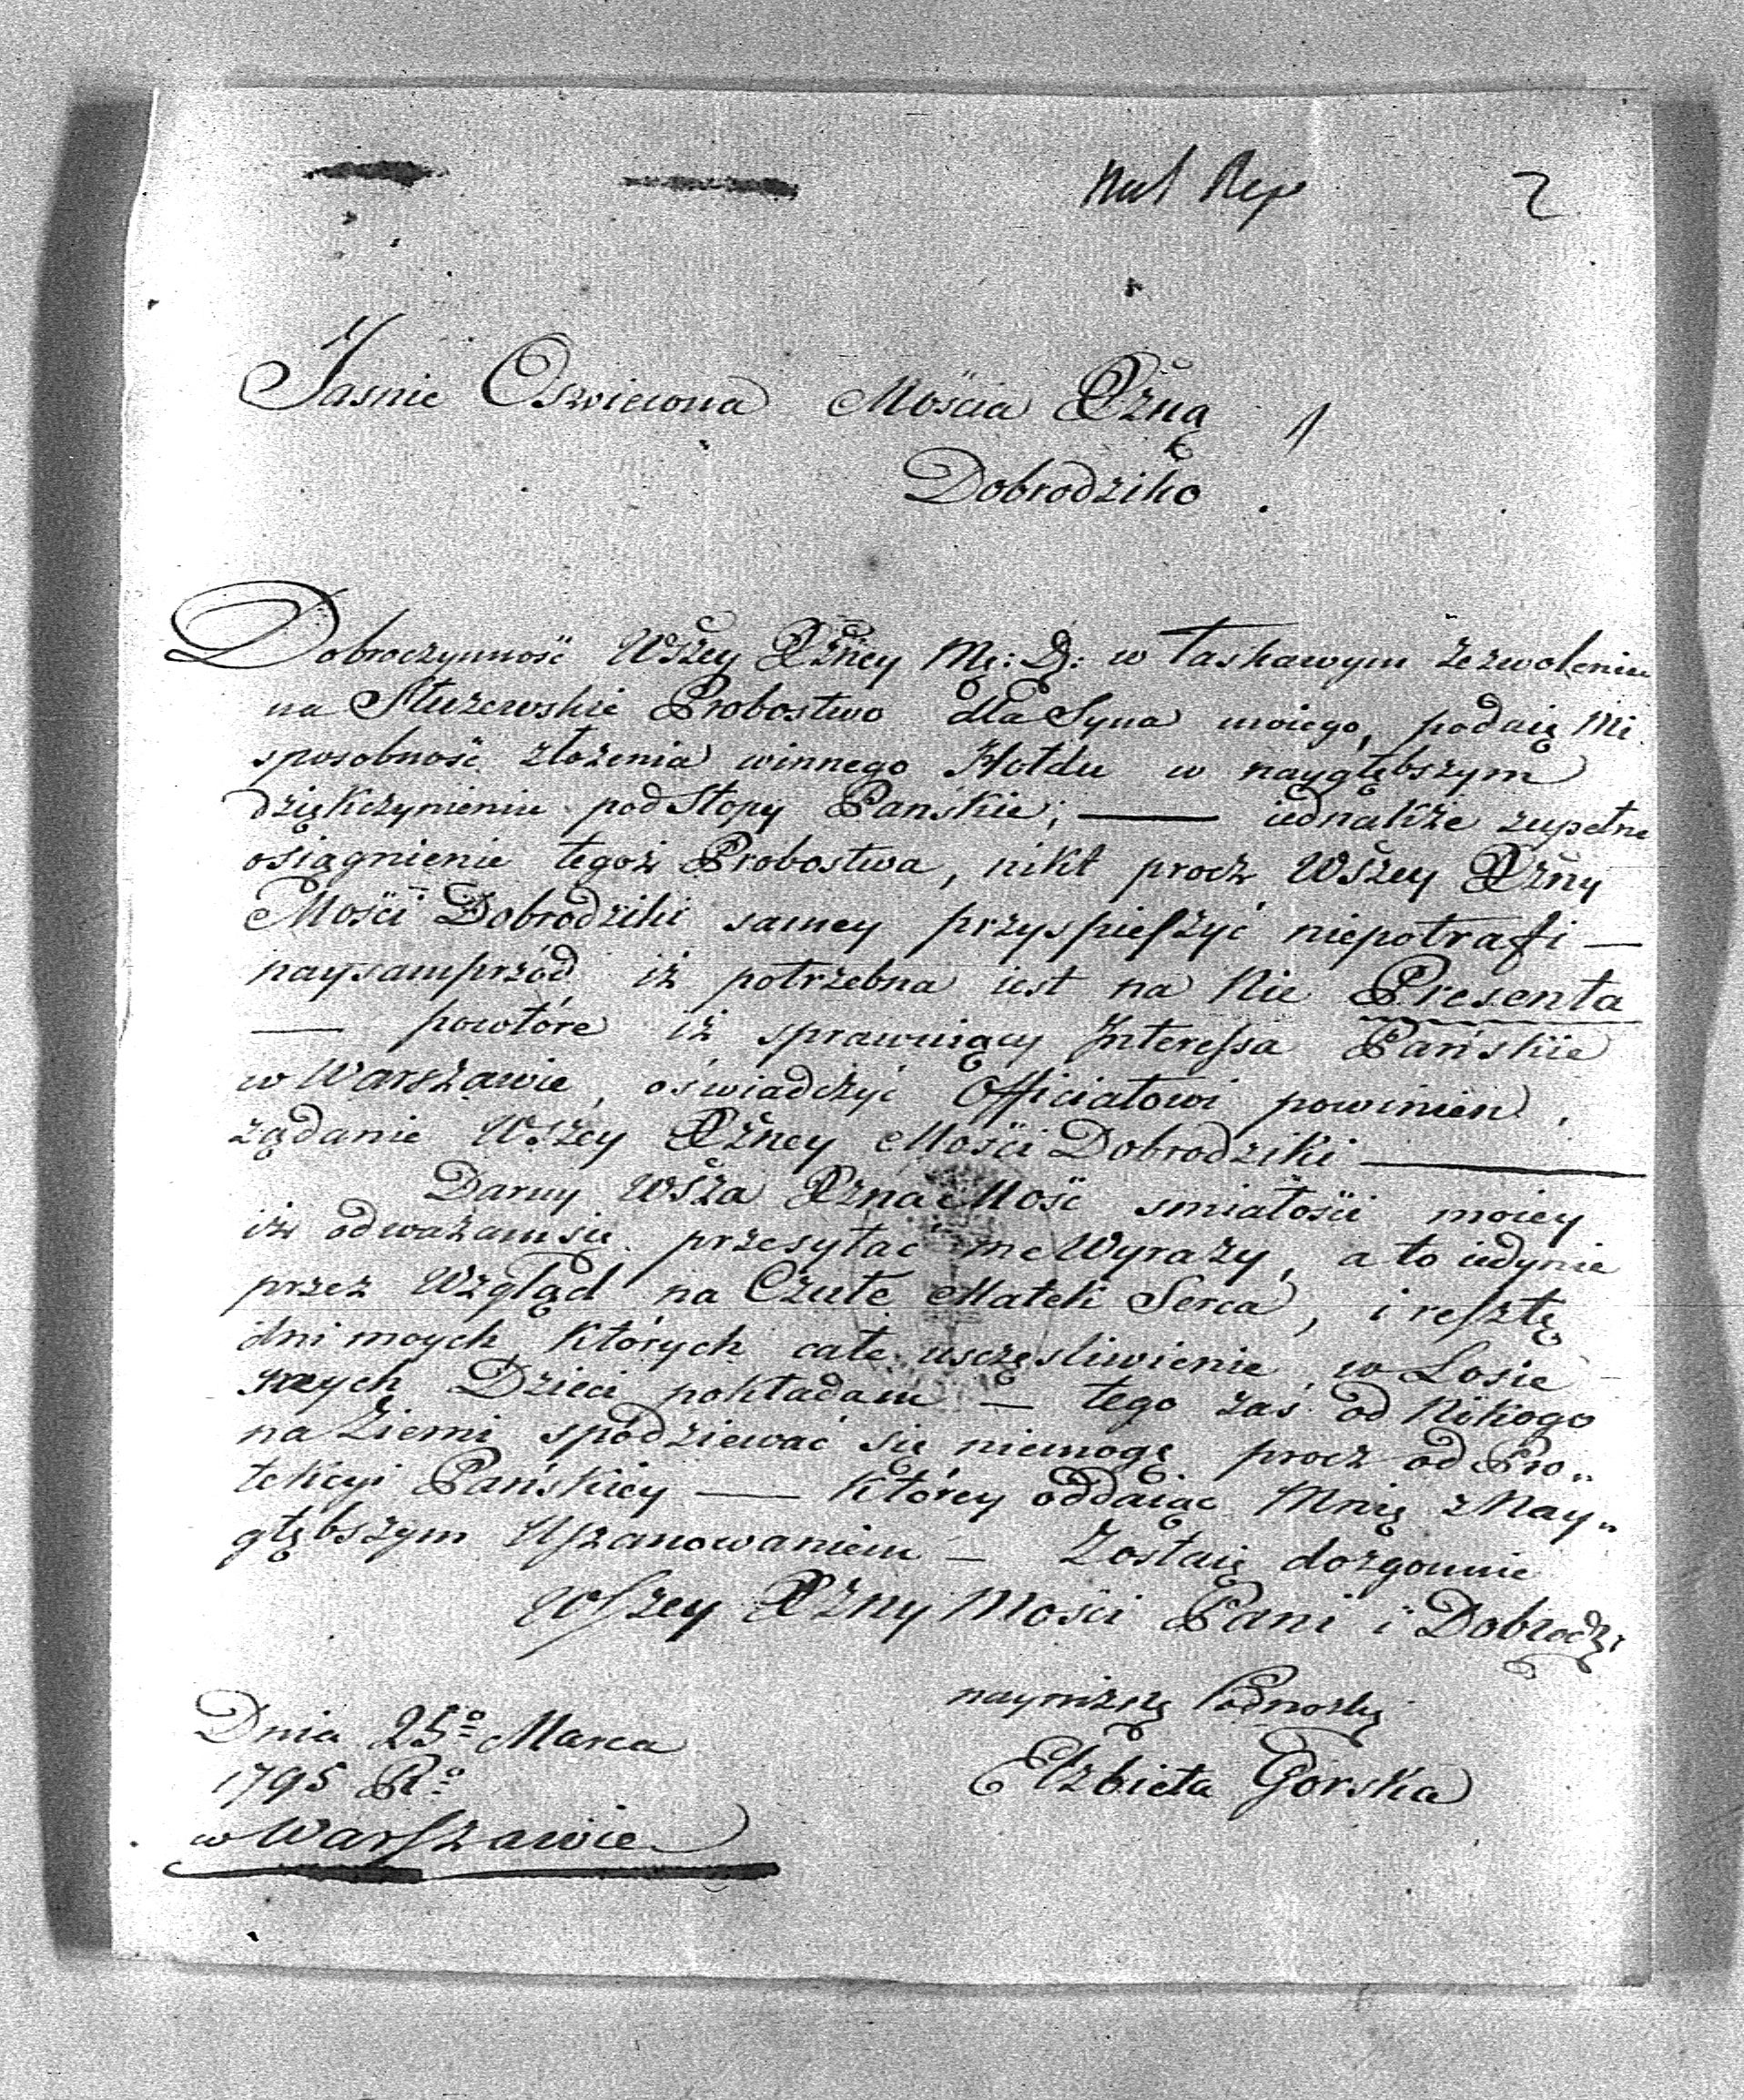 2
Jasnie Oswiecona Mościa Xżną
Dobrodziko
Dobroczynność WSzey Xżney Mę: D: w łaskawym zezwoleniu
na Służewskie Probostwo dla Syna moiego, podaię Mi
sposobność złożenia winnego Hołdu w naygłębszym
dziękczynieniu pod Stopy Pańskie; — iednakże zupełne
osiągnienie tegoż Probostwa, nikt procz WSzey Xżny
Mości Dobrodziki samey przyspieszyć niepotrafi —
naysamprzód iż potrzebna iest na Nie Presenta
— powtóre iż sprawuiący Interessa Pańskie
w Warszawie, oświadczyć Officiałowi powinien,
ządanie WSzey Xżney Mości Dobrodziki —
Daruy WSza Xzna Mość smiałości moiey
iż odważam się przesyłac me Wyrazy, a to iedynie
przez Wzgląd na Czułe Matek Serca, i resztę
dni moych których całe uszczęsliwienie w Losie
swych Dzieci pokładam — tego zaś od Nikogo
na Ziemi spodziewać się niemogę procz od Pro„
tekcyi Pańskiey — którey oddaiąc Mnię z Nay„
głębszym Uszanowaniem — Zostaię dozgonnie
WSzey Xżny Mości Pani i Dobrodzi
nayniższą Podnoszką
Elżbieta Gorska
Dnia 25º Marca
1795 Rº
w Warszawie